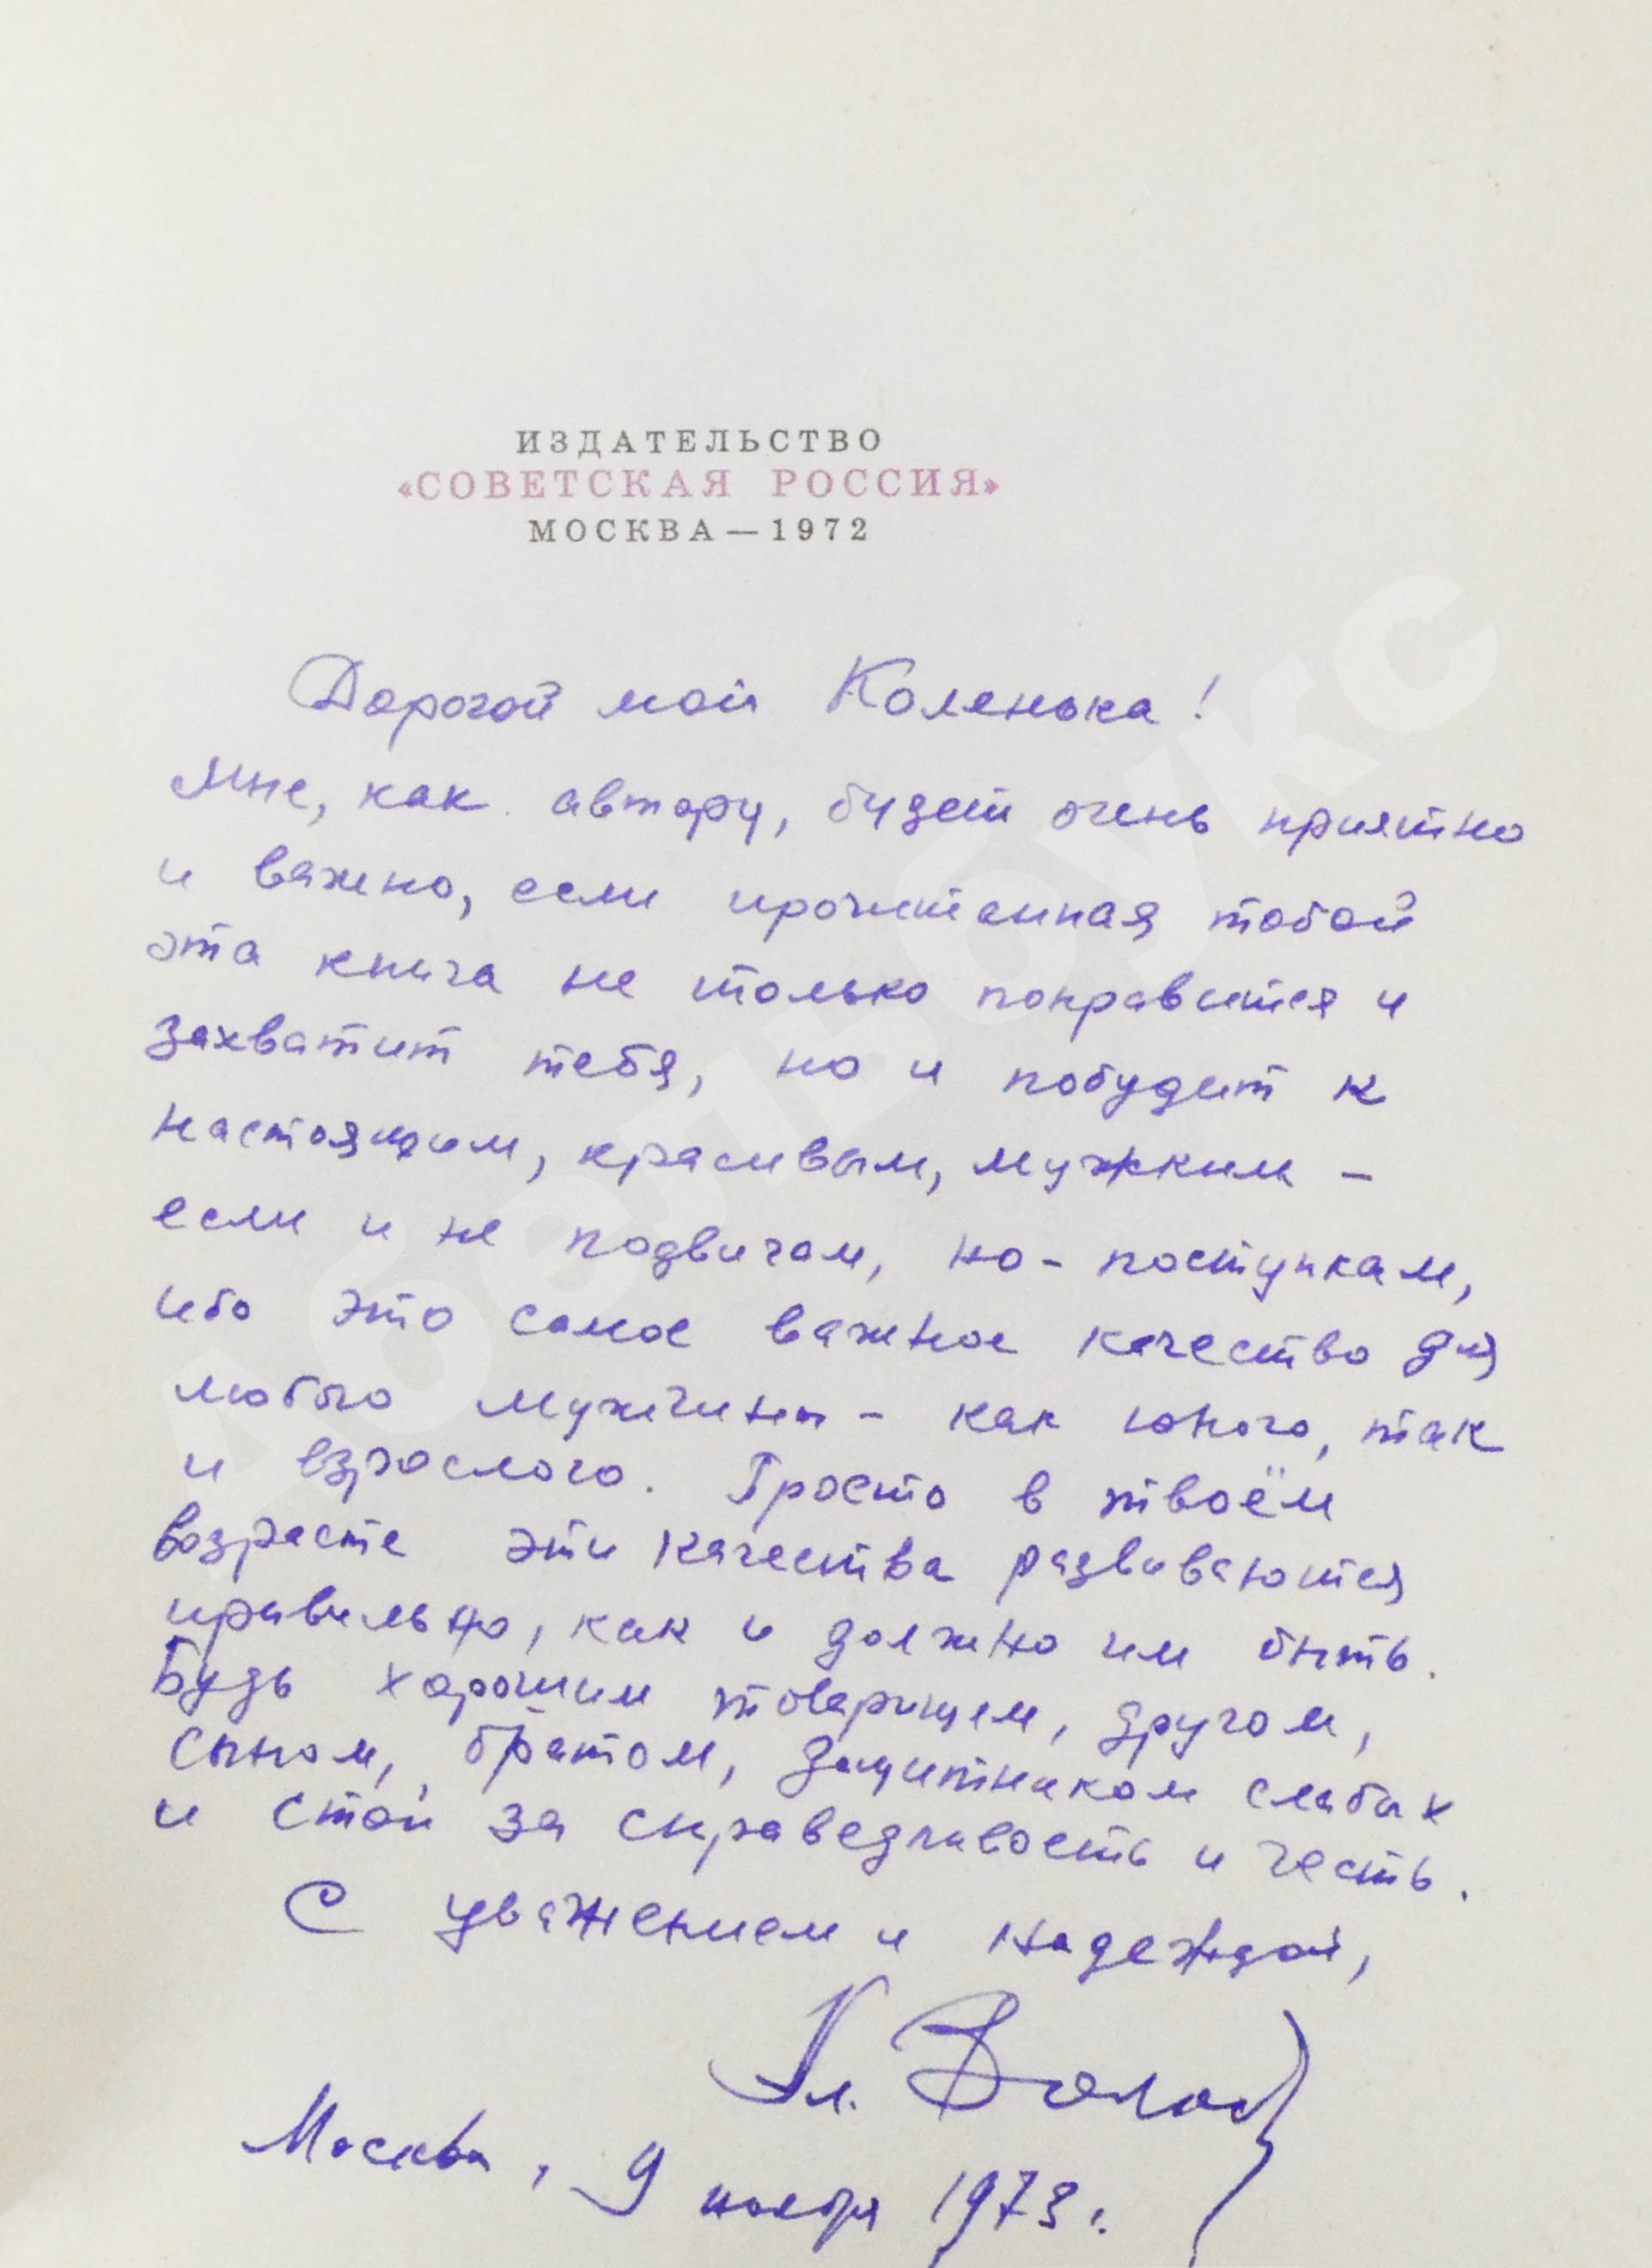 ИЗДАТЕЛЬСТВО
«СОВЕТСКАЯ РОССИЯ»
МОСКВА — 1972
Дорогой мой Коленька!
Мне, как автору, будет очень приятно
и важно, если прочитанная тобой
эта книга не только понравится и
захватит тебя, но и побудит к
настоящим, красивым, мужским –
если и не подвигам, но – поступкам,
ибо это самое важное качество для
любого мужчины – как юного, так
и взрослого. Просто в твоём
возрасте эти качества развиваются
правильно, как и должно им быть.
Будь хорошим товарищем, другом,
сыном, братом, защитником слабых
и стой за справедливость и честь.
С уважением и надеждой,
Москва, 9 ноября 1973 г.
Абельбукс